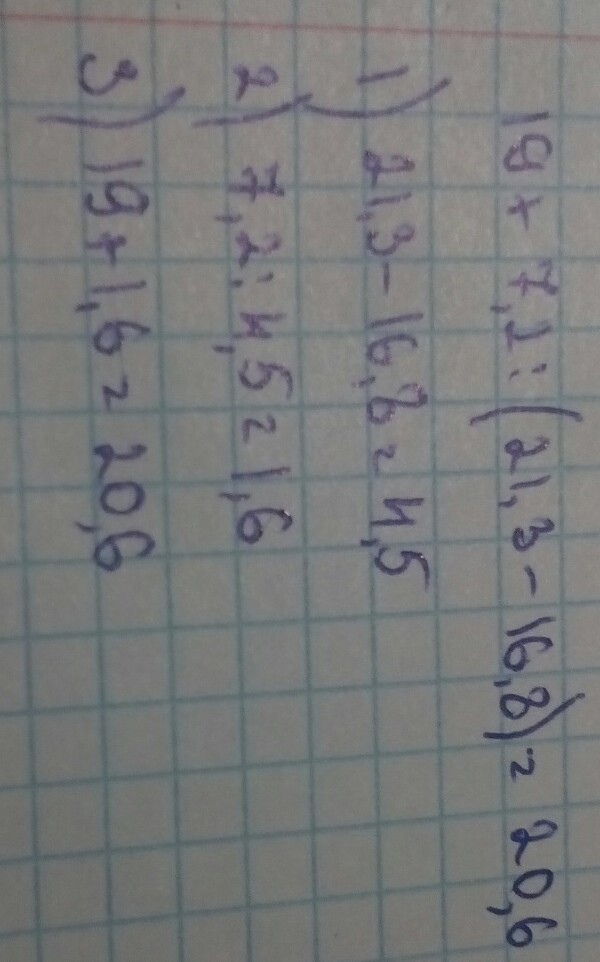 19 + 7,2 : (21,3 - 16,8) = 20,6
1) 21,3 - 16,8 = 4,5
2) 7,2 : 4,5 = 1,6
3) 19 + 1,6 = 20,6